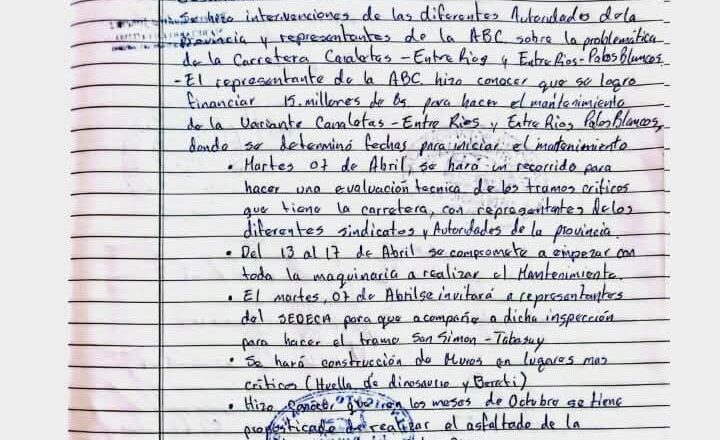 - Se hizo intervenciones de las diferentes Autoridades de la
provincia y representantes de la ABC sobre la problemática
de la Carretera Canaletas - Entre Rios y Entre Rios - Palos Blancos.
- El representante de la ABC hizo conocer que se logro
financiar 15. millones de Bs para hacer el mantenimiento
de la Variante Canaletas - Entre Rios y Entre Rios, Palos Blancos,
donde se determinó fechas para iniciar el mantenimiento
• Martes 07 de Abril, se hará un recorrido para
hacer una evaluación tecnica de los tramos criticos
que tiene la carretera, con representantes de los
diferentes sindicatos y Autoridades de la provincia.
• Del 13 al 17 de Abril se compromete a empezar con
toda la maquinaria a realizar el Mantenimiento.
• El martes, 07 de Abril se invitará a representantes
del SEDECA para que acompañe a dicha inspección
para hacer el tramo San Simon - Tabasay
• Se hará construcción de Muros en lugares mas
criticos (Huella de dinosaurio y Bereti)
• Hizo conocer que en los meses de Octubre se tiene
pronosticado de realizar el asfaltado de la